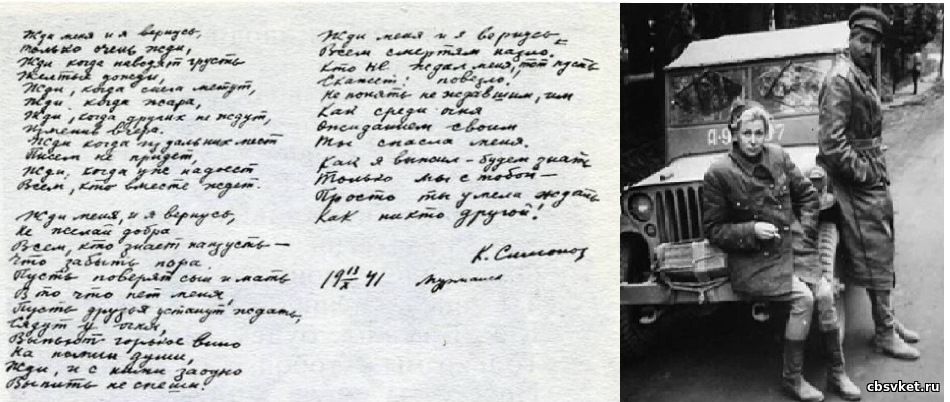 Жди меня и я вернусь,
только очень жди,
Жди когда наводят грусть
Желтые дожди,
Жди, когда снега метут,
Жди когда жара,
Жди, когда других не ждут,
Изменив вчера.
Жди когда из дальних мест
Писем не придет,
Жди, когда уже надоест
Всем, кто вместе ждет.
Жди меня, и я вернусь,
Не желай добра
Всем, кто знает наизусть—
Что забыть пора.
Пусть поверят сын и мать
В то что нет меня,
Пусть друзья устанут ждать,
Сядут у огня,
Выпьют горькое вино
На помин души,
Жди, и с ними заодно
Выпить не спеши!
Жди меня и я вернусь—
Всем смертям назло.
Кто не ждал меня, тот пусть
Скажет: повезло.
Не понять не ждавшим, им
Как среди огня
Ожиданием своим
Ты спасла меня.
Как я выжил - будем знать
Только мы с тобой—
Просто ты умела ждать
Как никто другой!
К. Симонов
19 13/X 41 Мурманск
cbsvket.ru